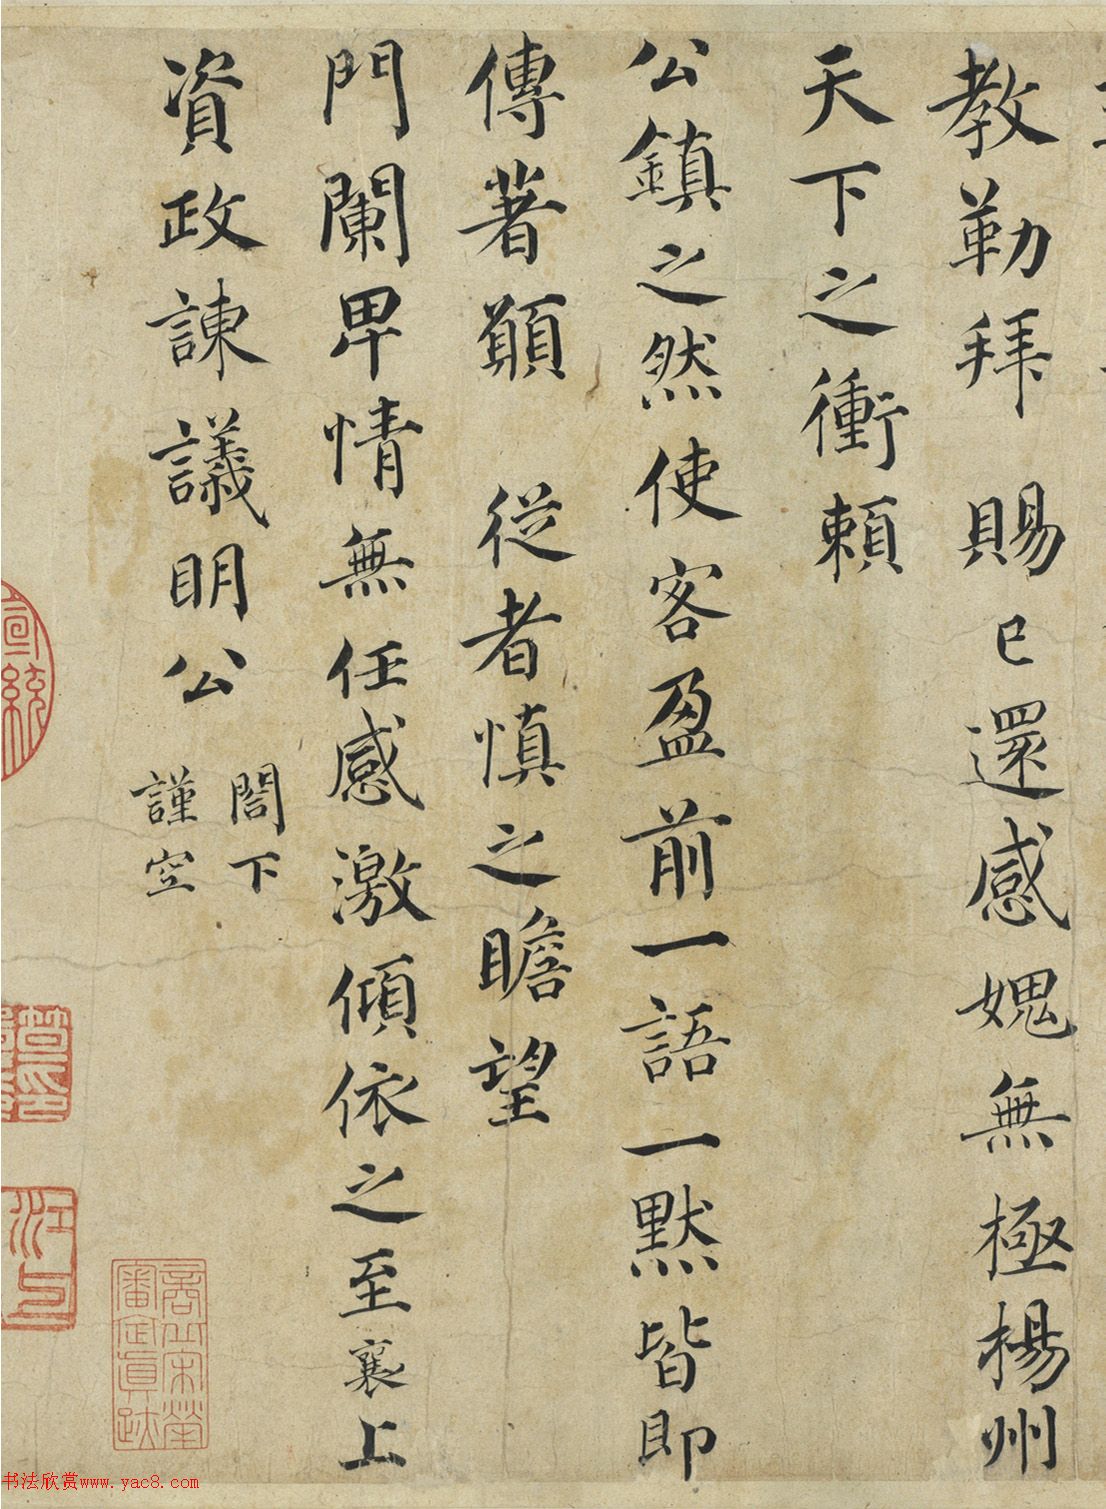 教勒拜 賜已還感媿無極楊州
天下之衝賴
公鎮之然使客盈前一語一默皆即
傳著願 從者慎之瞻望
門闌卑情無任感激傾依之至襄上
資政諫議明公
閤下
謹空
商丘宋犖
審定真跡
宣統
书法欣赏www.yac8.com